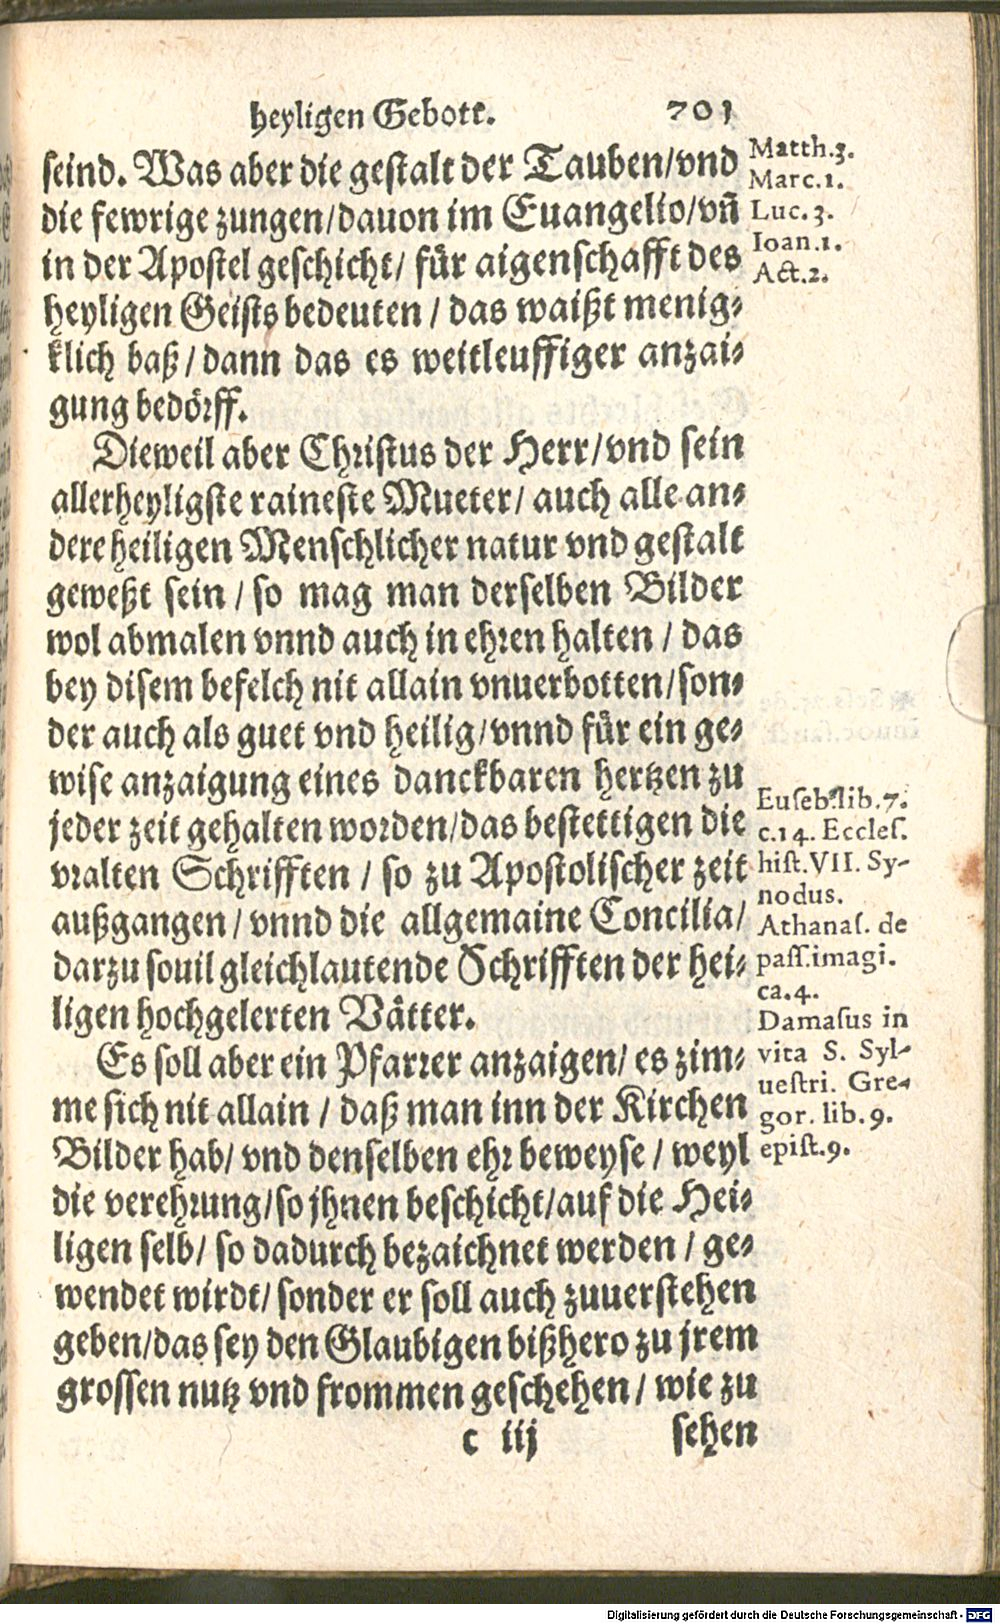 heyligen Gebott. 701
seind. Was aber die gestalt der Tauben/vnd
die fewrige zungen/dauon im Euangelio/vñ
in der Apostel geschicht/ für aigenschafft des
heyligen Geists bedeuten / das waißt menig-
klich baß / dann das es weitleuffiger anzai-
gung bedörff.
Dieweil aber Christus der Herr/vnd sein
allerheyligste raineste Mueter/ auch alle an-
dere heiligen Menschlicher natur vnd gestalt
geweßt sein / so mag man derselben Bilder
wol abmalen vnnd auch in ehren halten / das
bey disem befelch nit allain vnuerbotten/son-
der auch als guet vnd heilig/vnnd für ein ge-
wise anzaigung eines danckbaren hertzen zu
jeder zeit gehalten worden/das bestettigen die
vralten Schrifften / so zu Apostolischer zeit
außgangen / vnnd die allgemaine Concilia/
darzu souil gleichlautende Schrifften der hei-
ligen hochgelerten Vätter.
Es soll aber ein Pfarrer anzaigen/ es zim-
me sich nit allain / daß man inn der Kirchen
Bilder hab/ vnd denselben ehr beweyse / weyl
die verehrung/so jhnen beschicht/auf die Hei-
ligen selb/ so dadurch bezaichnet werden / ge-
wendet wirdt/ sonder er soll auch zuuerstehen
geben/das sey den Glaubigen bißhero zu jrem
grossen nutz vnd frommen geschehen / wie zu
c iij sehen
Matth.3.
Marc.1.
Luc.3.
Ioan.1.
Act.2.
Euseb.lib.7.
c.14. Eccles.
hist.VII. Sy-
nodus.
Athanas. de
pass.imagi.
ca.4.
Damasus in
vita S. Syl-
uestri. Gre-
gor. lib.9.
epist.9.
Digitalisierung gefördert durch die Deutsche Forschungsgemeinschaft - DFG